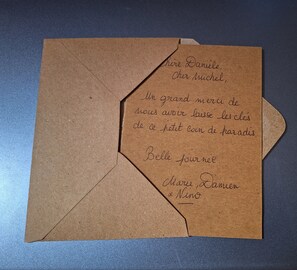 Chère Danièle,
Cher Michel,
Un grand merci de
nous avoir laissé les clés
de ce petit coin de paradis
Belle journée
Marie, Damien
& Nino